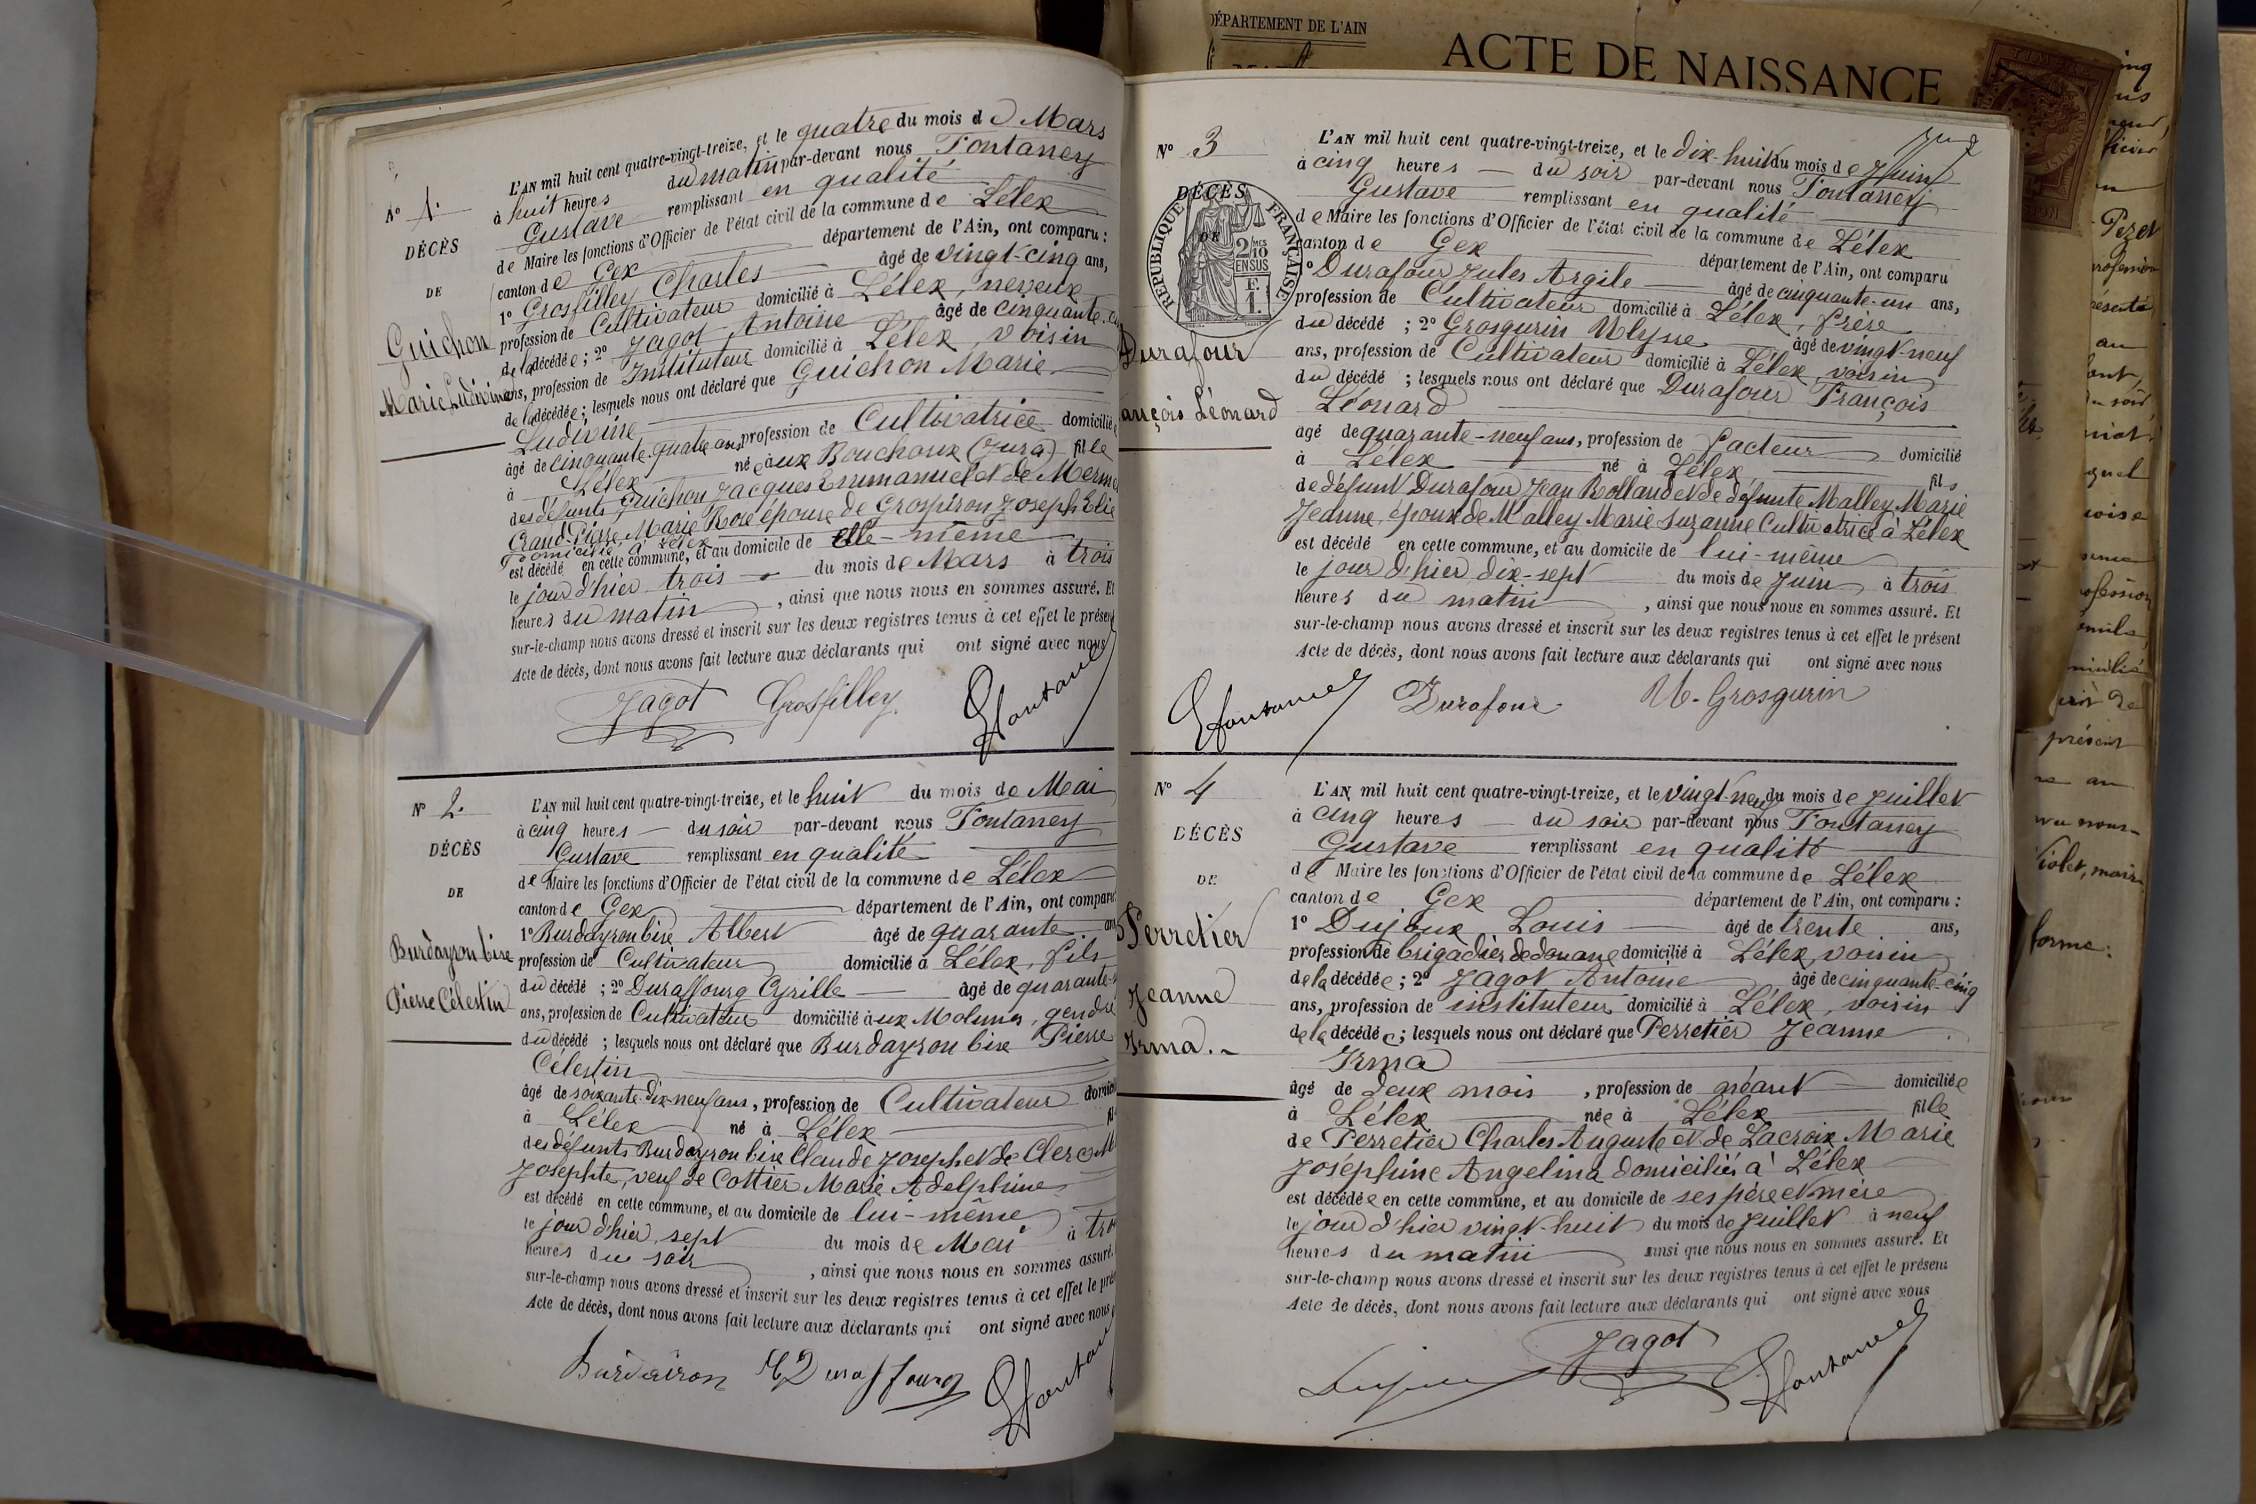 N° 1.
DÉCÈS
DE
Guichon
Marie Ludivine
L'AN mil huit cent quatre-vingt-treize, et le quatre du mois de Mars
à huit heures du matin par-devant nous Fontanney
Gustave remplissant en qualité
de Maire les fonctions d'Officier de l'état civil de la commune de Lélex
canton de Gex département de l'Ain, ont comparu :
1° Grosfilley Charles âgé de vingt-cinq ans,
profession de Cultivateur domicilié à Lélex, neveux
de la décédée ; 2° Jagot Antoine âgé de cinquante
ans, profession de Instituteur domicilié à Lélex, voisin
de la décédée ; lesquels nous ont déclaré que Guichon Marie
Ludivine
âgé de cinquante-quatre ans, profession de Cultivatrice domiciliée
à Lélex né aux Bouchoux (Jura) fille
des défunts Guichon Jacques Emmanuel et de Mermet
Grand-Pierre Marie Rose épouse de Grospiron Joseph Elie
domicilié à Lélex
est décédé en cette commune, et au domicile de elle-même
le jour d'hier trois du mois de Mars à trois
heures du matin, ainsi que nous nous en sommes assuré. Et
sur-le-champ nous avons dressé et inscrit sur les deux registres tenus à cet effet le présent
Acte de décès, dont nous avons fait lecture aux déclarants qui ont signé avec nous
Jagot Grosfilley Gfontanney
N° 2.
DÉCÈS
DE
Burdayron bise
Pierre Célestin
L'AN mil huit cent quatre-vingt-treize, et le huit du mois de Mai
à cinq heures du soir par-devant nous Fontanney
Gustave remplissant en qualité
de Maire les fonctions d'Officier de l'état civil de la commune de Lélex
canton de Gex département de l'Ain, ont comparu
1° Burdayron bise Albert âgé de quarante ans
profession de Cultivateur domicilié à Lélex, fils
du décédé ; 2° Duraffourg Cyrille âgé de quarante
ans, profession de Cultivateur domicilié aux Molunes, gendre
du décédé ; lesquels nous ont déclaré que Burdayron bise Pierre
Célestin
âgé de soixante-dix-neuf ans, profession de Cultivateur domicilié
à Lélex né à Lélex
des défunts Burdayron bise Claude Joseph et de Clerc M
Josephte, veuf de Cottier Marie Adelphine
est décédé en cette commune, et au domicile de lui-même
le jour d'hier sept du mois de Mai à tro
heures du soir, ainsi que nous nous en sommes assuré.
sur-le-champ nous avons dressé et inscrit sur les deux registres tenus à cet effet le prés
Acte de décès, dont nous avons fait lecture aux déclarants qui ont signé avec nous
Burdairon Duraffourg Gfontan
DÉPARTEMENT DE L'AIN
ACTE DE NAISSANCE
N° 3
DÉCÈS
DE
RÉPUBLIQUE FRANÇAISE
2/10 EN SUS
F.
1.
Durafour
ançois Léonard
L'AN mil huit cent quatre-vingt-treize, et le dix-huit du mois de Juin
à cinq heures du soir par-devant nous Fontanney
Gustave remplissant en qualité
de Maire les fonctions d'Officier de l'état civil de la commune de Lélex
canton de Gex département de l'Ain, ont comparu
1° Durafour Jules Argile âgé de cinquante-un ans,
profession de Cultivateur domicilié à Lélex, frère
du décédé ; 2° Grosgurin Ulysse âgé de vingt-neuf
ans, profession de Cultivateur domicilié à Lélex, voisin
du décédé ; lesquels nous ont déclaré que Durafour François
Léonard
âgé de quarante-neuf ans, profession de facteur domicilié
à Lélex né à Lélex fils
de défunt Durafour Jean Rolland et de défunte Malley Marie
Jeanne, époux de Malley Marie Suzanne Cultivatrice à Lélex
est décédé en cette commune, et au domicile de lui-même
le jour d'hier dix-sept du mois de Juin à trois
heures du matin, ainsi que nous nous en sommes assuré. Et
sur-le-champ nous avons dressé et inscrit sur les deux registres tenus à cet effet le présent
Acte de décès, dont nous avons fait lecture aux déclarants qui ont signé avec nous
Gfontanney Durafour U. Grosgurin
N° 4
DÉCÈS
DE
Perretier
Jeanne
Irma.
L'AN mil huit cent quatre-vingt-treize, et le vingt-neuf du mois de Juillet
à cinq heures du soir par-devant nous Fontanney
Gustave remplissant en qualité
de Maire les fonctions d'Officier de l'état civil de la commune de Lélex
canton de Gex département de l'Ain, ont comparu :
1° Dujoux Louis âgé de trente ans,
profession de brigadier de douane domicilié à Lélex, voisin
de la décédée ; 2° Jagot Antoine âgé de cinquante-cinq
ans, profession de instituteur domicilié à Lélex, voisin
de la décédée ; lesquels nous ont déclaré que Perretier Jeanne
Irma
âgé de deux mois, profession de néant domiciliée
à Lélex née à Lélex fille
de Perretier Charles Auguste et de Lacroix Marie
Joséphine Angelina domiciliés à Lélex
est décédée en cette commune, et au domicile de ses père et mère
le jour d'hier vingt-huit du mois de Juillet à neuf
heures du matin ainsi que nous nous en sommes assuré. Et
sur-le-champ nous avons dressé et inscrit sur les deux registres tenus à cet effet le présent
Acte de décès, dont nous avons fait lecture aux déclarants qui ont signé avec nous
Dujoux Jagot Gfontanney